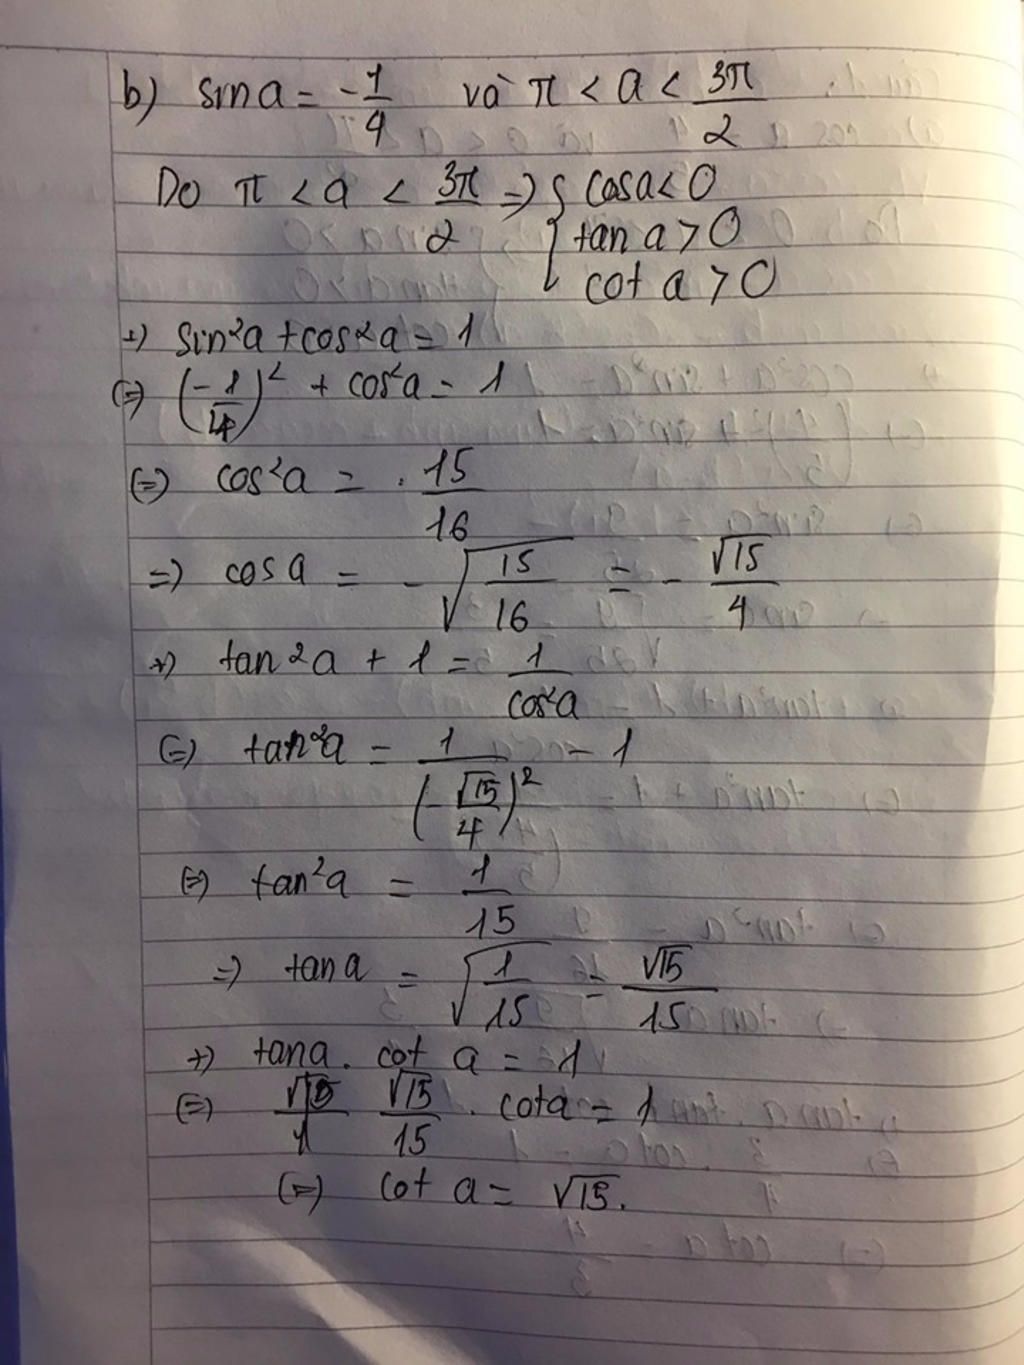 b) sin a = -1/4 và π < a < 3π/2
Do π < a < 3π/2 => { cosa < 0
tan a > 0
cot a > 0
+) sin²a + cos²a = 1
(=) (-1/4)² + cos²a = 1
(=) cos²a = 15/16
=) cosa = -√(15/16) = -√15/4
+) tan²a + 1 = 1/cos²a
(=) tan²a = 1/(-√15/4)² - 1
(=) tan²a = 1/15
=) tan a = √(1/15) = √15/15
+) tana . cot a = 1
(=) √15/15 . cota = 1
(=) cot a = √15.